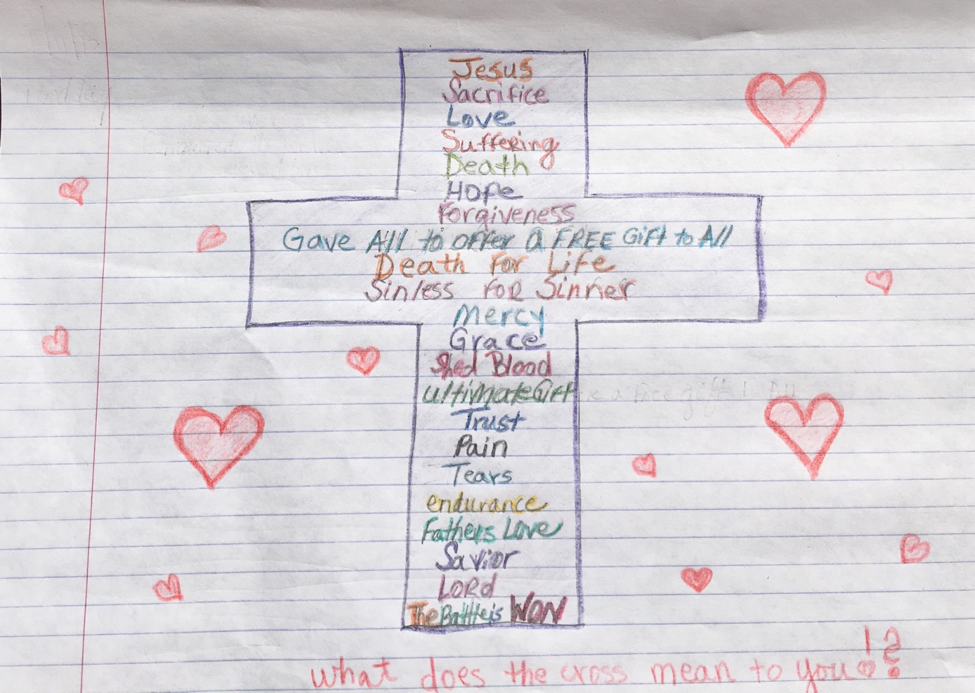 Jesus
Sacrifice
Love
Suffering
Death
Hope
Forgiveness
Gave All to offer a FREE Gift to All
Death For Life
Sinless FOR Sinner
Mercy
Grace
Shed Blood
ultimate Gift
Trust
Pain
Tears
endurance
Fathers Love
Savior
LORd
The Battle is WON
what does the cross mean to you!?